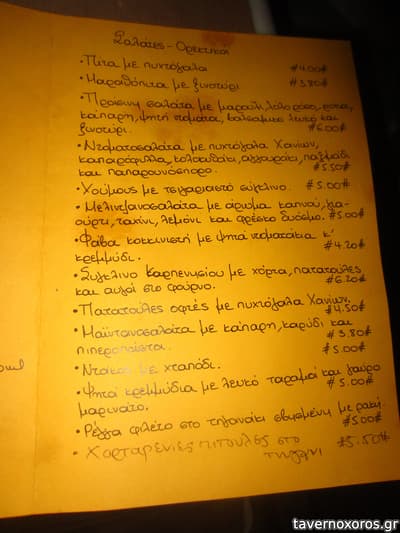 Σαλάτες - Ορεκτικά
• Πίτα με πυχτόγαλα #4.00#
• Μαραθόπιτα με ξινοτύρι #3.80#
• Πράσινη σαλάτα με μαρούλι, λόλα ρόσο, ρόκα,
κάπαρη, ψητή ντομάτα, βαλσάμικο λευκό και
ξινοτύρι. #6.00#
• Ντοματοσαλάτα με πυχτόγαλα Χανίων,
καπαρόφυλλα, κολοκυθάκι, αγγουράκι, παξιμάδι
και παπαρουνόσπορο. #5.50#
• Χούμους με τσιγαριαστό σύγλινο. #5.00#
• Μελιτζανοσαλάτα με άρωμα καπνού, για-
ούρτι, ταχίνι, λεμόνι και φρέσκο δυόσμο. #5.00#
• Φάβα κοκκινιστή με ψητά ντοματάκια κ'
κρεμμύδι. #4.20#
• Σύγκλινο Καρπενησίου με χόρτα, πατατούλες
και αυγό στο φούρνο. #6.20#
• Πατατούλες οφτές με πυχτόγαλα Χανίων.
#4.50#
• Μαϊντανοσαλάτα με κάπαρη, καρύδι και
πιπερόπαστα. #3.80#
• Ντάκος με χταπόδι. #5.00#
• Ψητά κρεμμύδια με λευκό ταραμά και γαύρο
μαρινάτο. #5.00#
• Ρέγγα φιλέτο στο τηγανάκι σβησμένη με ρακή.
#5.00#
• Χορταρένιες πιτούλες στο
τηγάνι #5.50#
tavernoxoros.gr